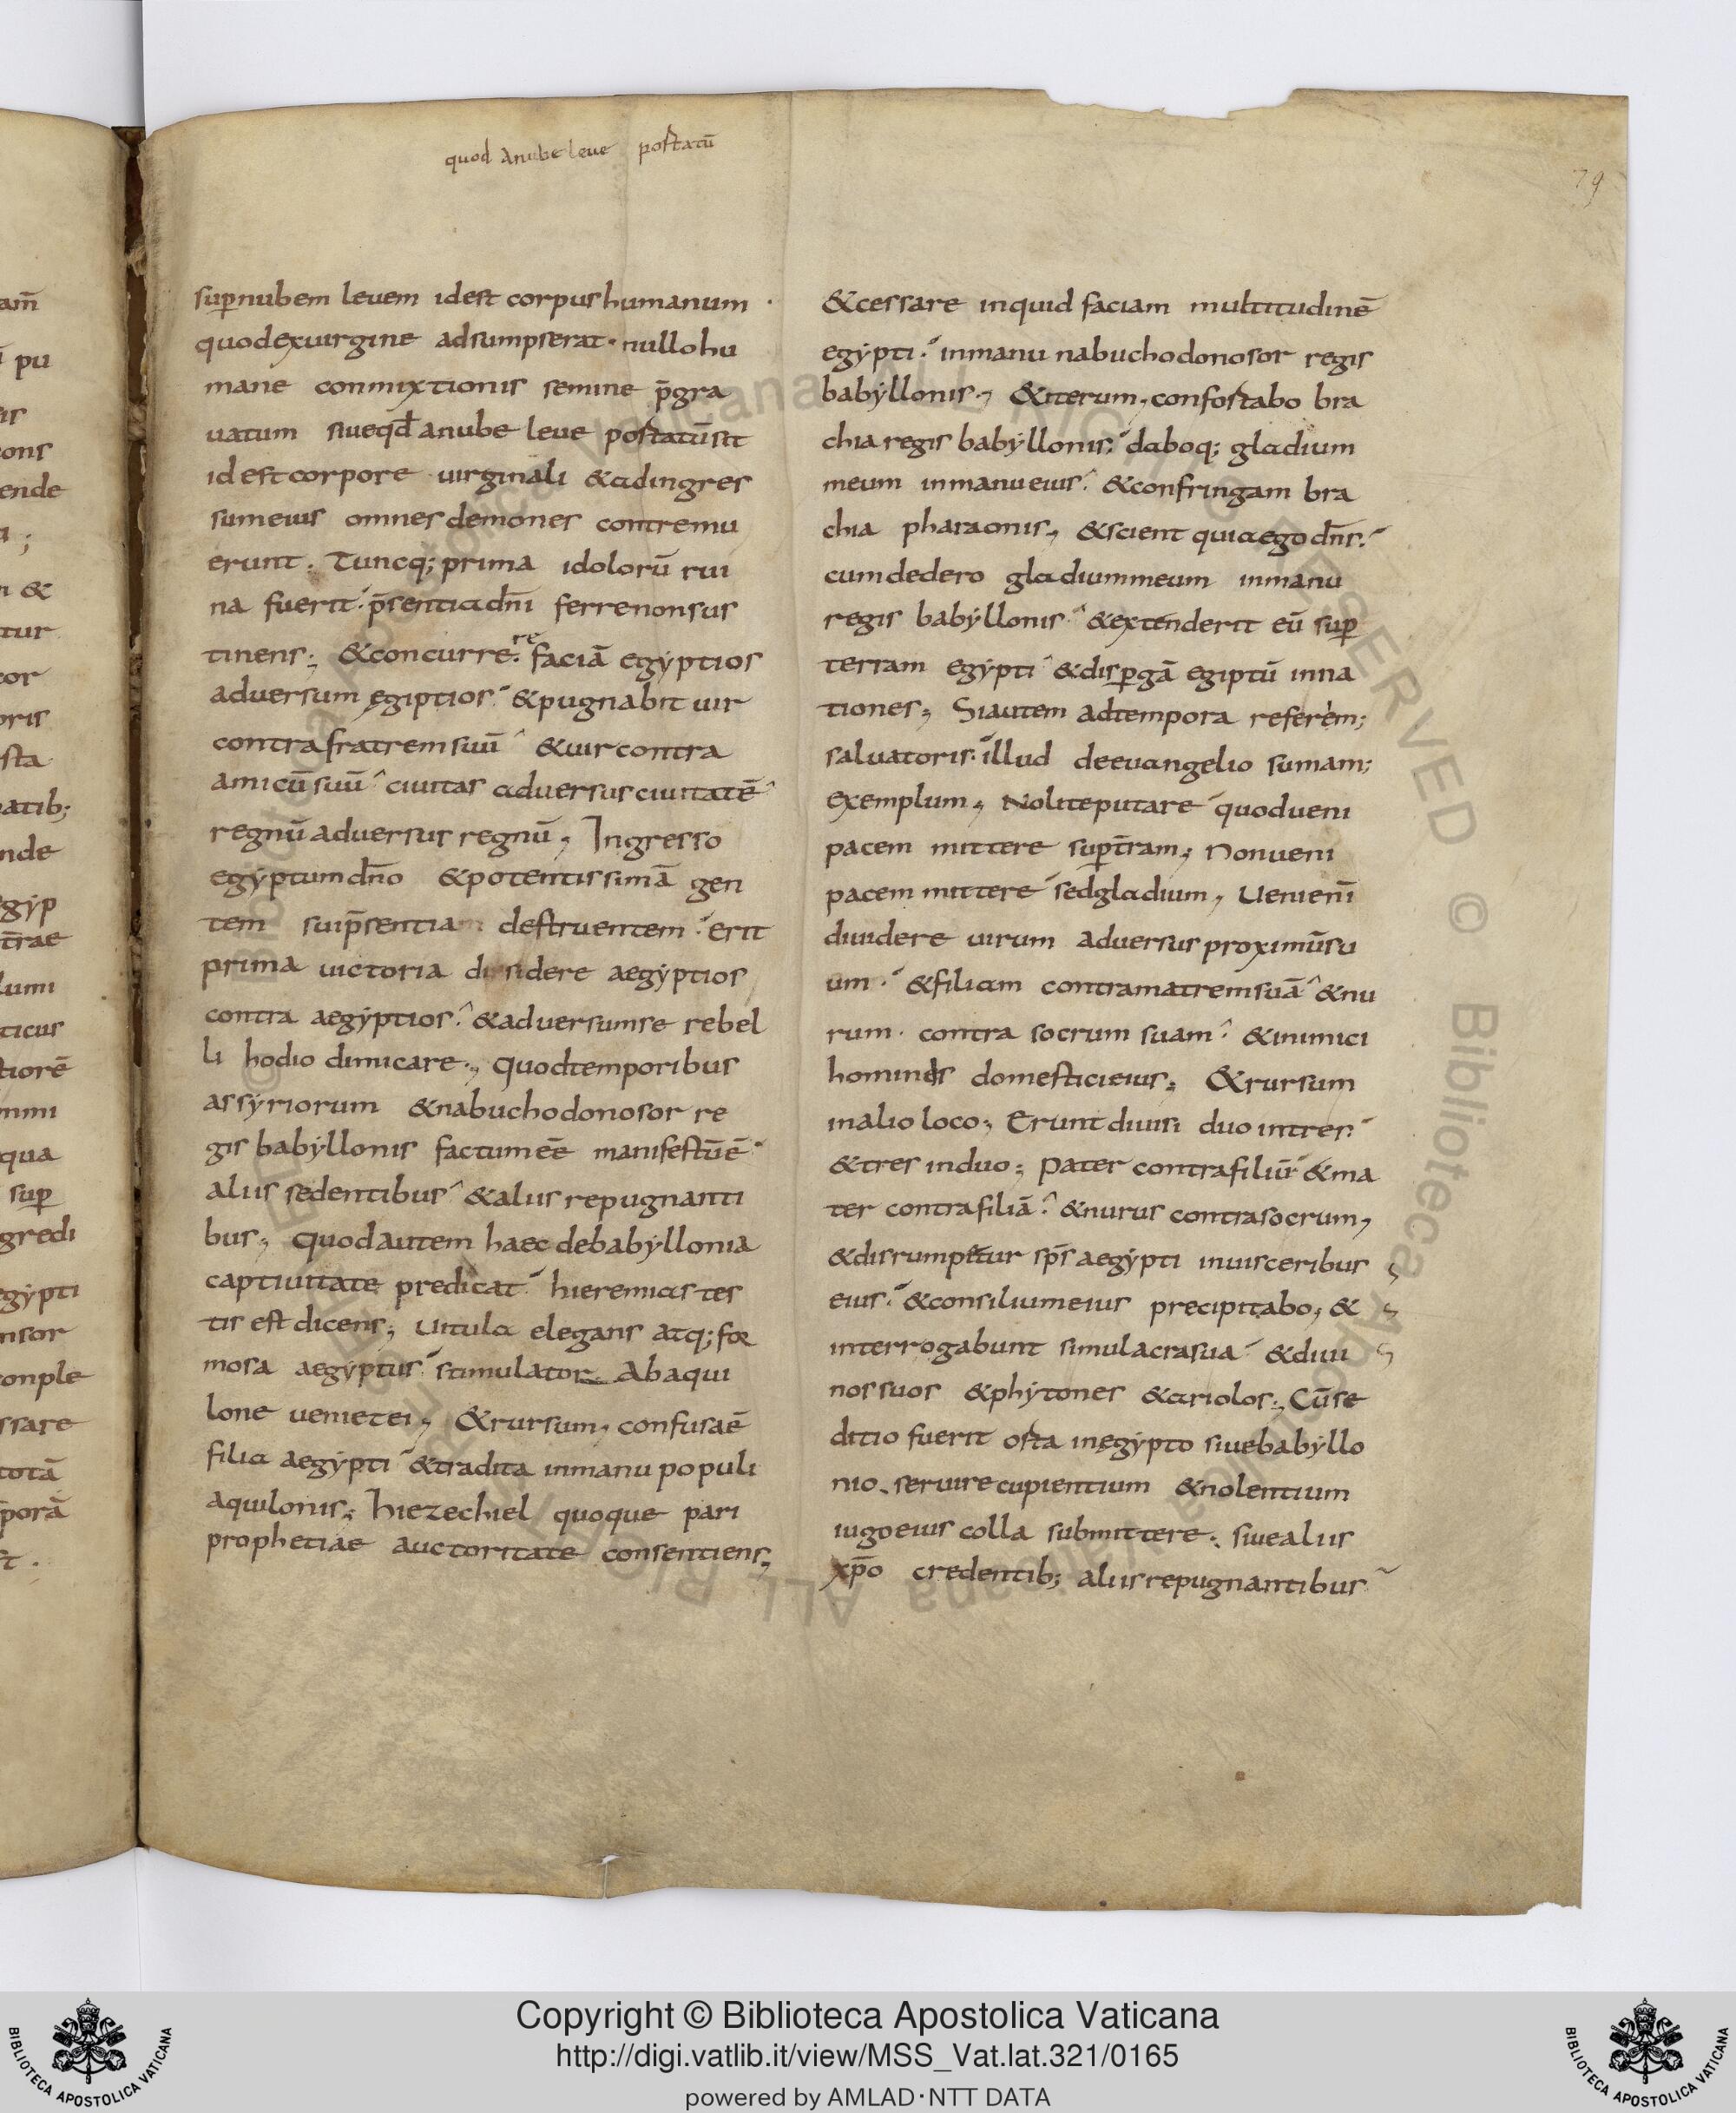 quod anube leue postatū
79
am̄
pu
sup̱nubem leuem idest corpus humanum ·
quodexuirgine adsumpserat · nullo hu
mane conmixtionis semine p̄gra
uatum siueqđ anube leue postatūsit
id est corpore uirginali &adingres
sumeius omnes demones contremu
erunt . Tuncq; prima idolorū rui
na fuerit p̄sentiadn̄i ferrenonsus
tinens; &concurrere faciā egẏptios
aduersum ęgiptios &pugnabit uir
contrafratremsuū &uircontra
amicūsuū ciuitas aduersus ciuitatē
regnū aduersus regnū, Ingresso
egẏptumdn̄o &potentissimā gen
tem suip̄sentiam destruentem erit
prima uictoria dissidere aegẏptios
contra aegẏptios &aduersumse rebel
li hodio dimicare., quodtemporibus
assẏriorum &nabuchodonosor re
gis babẏllonis factumeē manifestūē
aliis sedentibus &aliis repugnanti
bus, quodautem haec debabẏllonia
captiuitate predicat hieremias tes
tis est dicens, uitula elegans atq; for
mosa aegẏptus stimulator Abaqui
lone uenietei, &rursum, confusaē
filia aegẏpti &tradita inmanu populi
aquilonis, hiezechiel quoque pari
prophetiae auctoritate consentiens,
&cessare inquid faciam multitudinē
egẏpti inmanu nabuchodonosor regis
babẏllonis, &iterum, confostabo bra
chia regis babẏllonis. daboq; gladium
meum inmanueius &confringam bra
chia pharaonis, &scient quiaegodn̄s.
cumdedero gladiummeum inmanu
regis babẏllonis &extenderit eū sup̱
terram egẏpti &disp̱gā egiptū inna
tiones, Siautem adtempora referem;
saluatoris illud deeuangelio sumam;
exemplum, Noliteputare quodueni
pacem mittere sup̱t̄ram, Nonueni
pacem mittere sedgladium, Uenien̄i
diuidere uirum aduersus proximūsu
um &filiam contramatremsuā &nu
rum contra socrum suam &inimici
hominis domesticieius, &rursum
inalio loco, Erunt diuisi duo intres
&tres induo, pater contrafiliū &ma
ter contrafiliā &nurus contrasocrum,
&disrumpetur sp̄s aegẏpti inuisceribus
eius &consiliumeius precipitabo, &
interrogabunt simulacrasua &diui
nos suos &phẏtones &ariolos, Cūse
ditio fuerit osta inęgẏpto siuebabẏllo
nio seruirecupientium &nolentium
iugoeius colla submittere. siuealiis
xp̄o credentib; aliisrepugnantibus
Copyright © Biblioteca Apostolica Vaticana
http://digi.vatlib.it/view/MSS_Vat.lat.321/0165
powered by AMLAD·NTT DATA
BIBLIOTECA APOSTOLICA VATICANA
BIBLIOTECA APOSTOLICA VATICANA